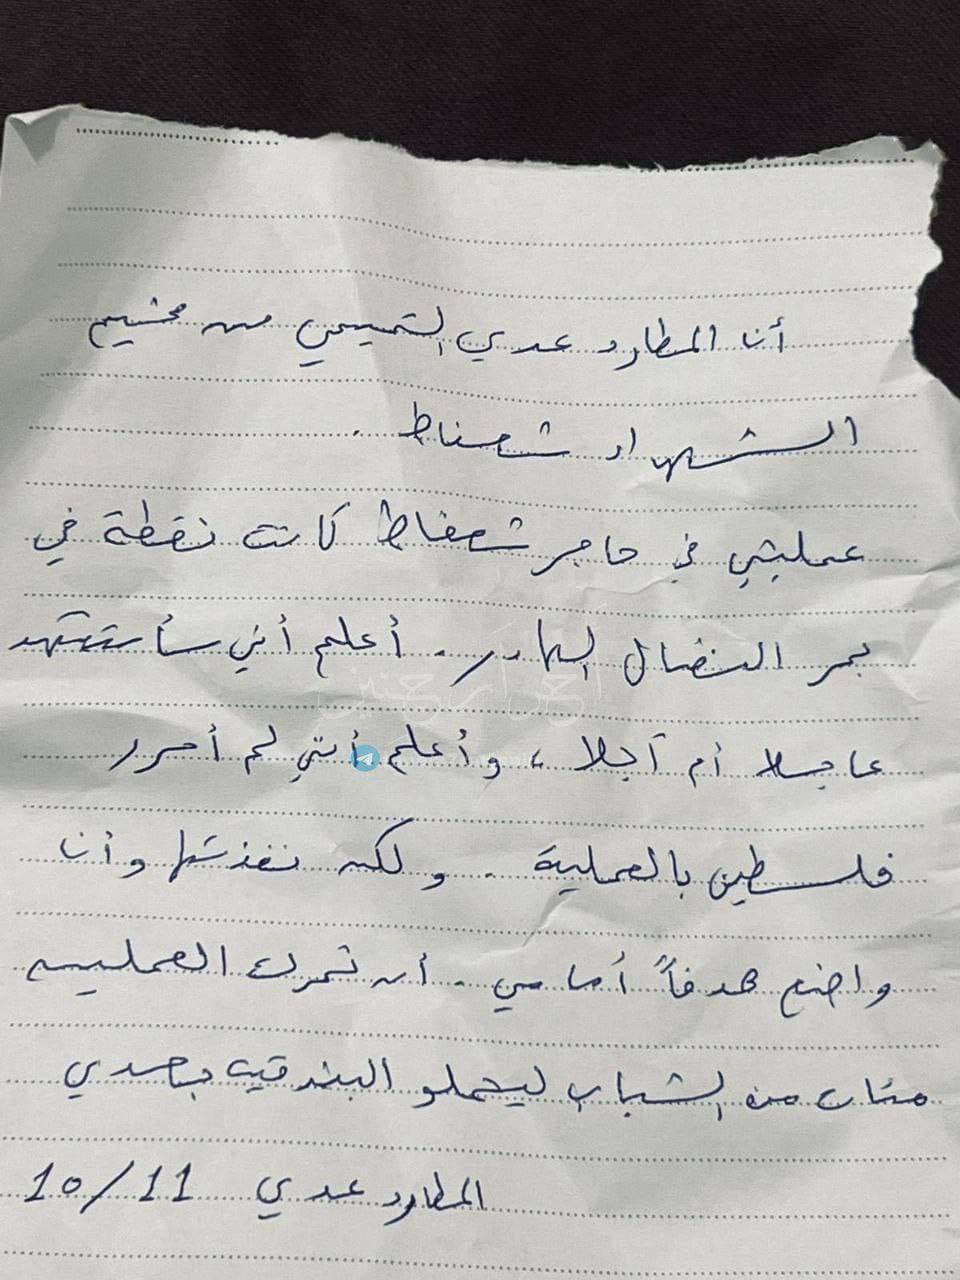 أنا المطارد عدي التميمي من مخيم
الشهداد شعفاط.
عمليتي في حاجز شعفاط كانت نقطة في
بحر النضال الهادر. أعلم أني سأستشهد
عاجلا أم آجلا، وأعلم أنني لم أحرر
فلسطين بالعملية. ولكن نفذتها وأنا
واضع هدفاً أمامي. أن تحرك العمليه
مئات من الشباب ليحملو البندقيه بعدي
المطارد عدي 10/11